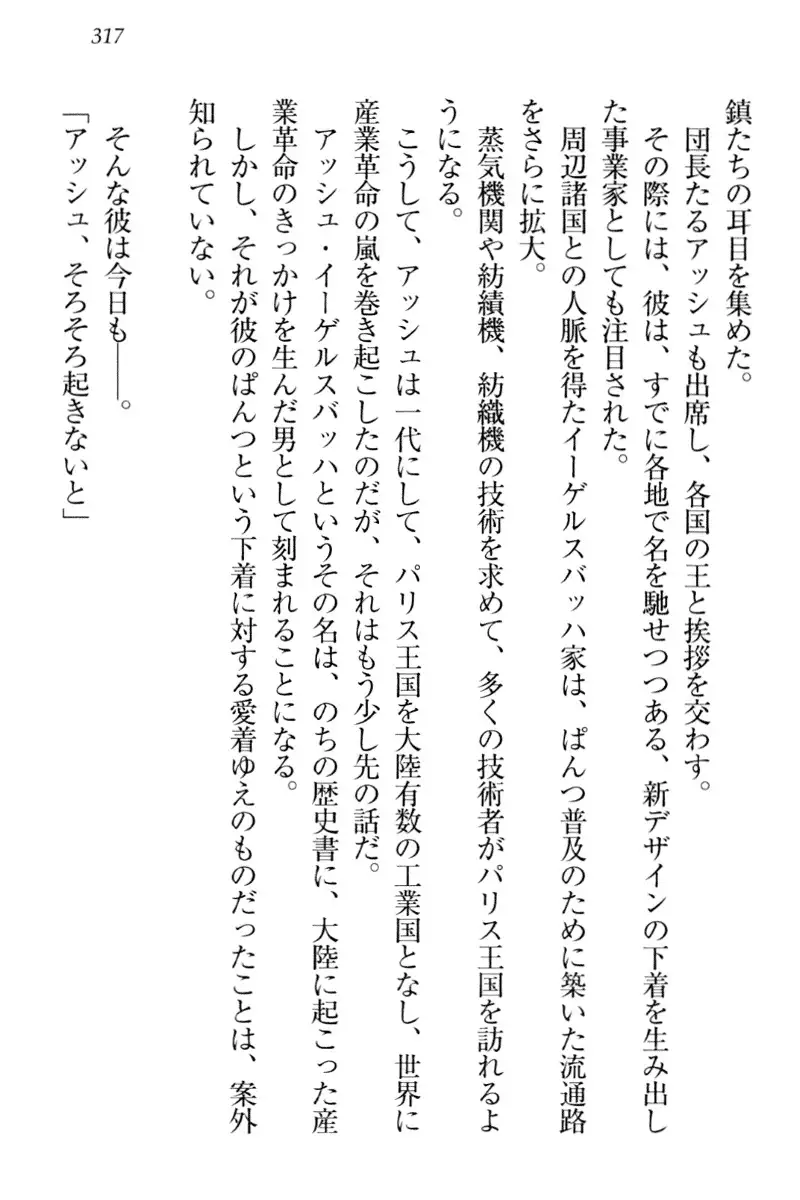 317
鎮たちの耳目を集めた。
団長たるアッシュも出席し、各国の王と挨拶を交わす。
その際には、彼は、すでに各地で名を馳せつつある、新デザインの下着を生み出し
た事業家としても注目された。
周辺諸国との人脈を得たイーゲルスバッハ家は、ぱんつ普及のために築いた流通路
をさらに拡大。
蒸気機関や紡績機、紡織機の技術を求めて、多くの技術者がパリス王国を訪れるよ
うになる。
こうして、アッシュは一代にして、パリス王国を大陸有数の工業国となし、世界に
産業革命の嵐を巻き起こしたのだが、それはもう少し先の話だ。
アッシュ・イーゲルスバッハというその名は、のちの歴史書に、大陸に起こった産
業革命のきっかけを生んだ男として刻まれることになる。
しかし、それが彼のぱんつという下着に対する愛着ゆえのものだったことは、案外
知られていない。
そんな彼は今日も――。
「アッシュ、そろそろ起きないと」